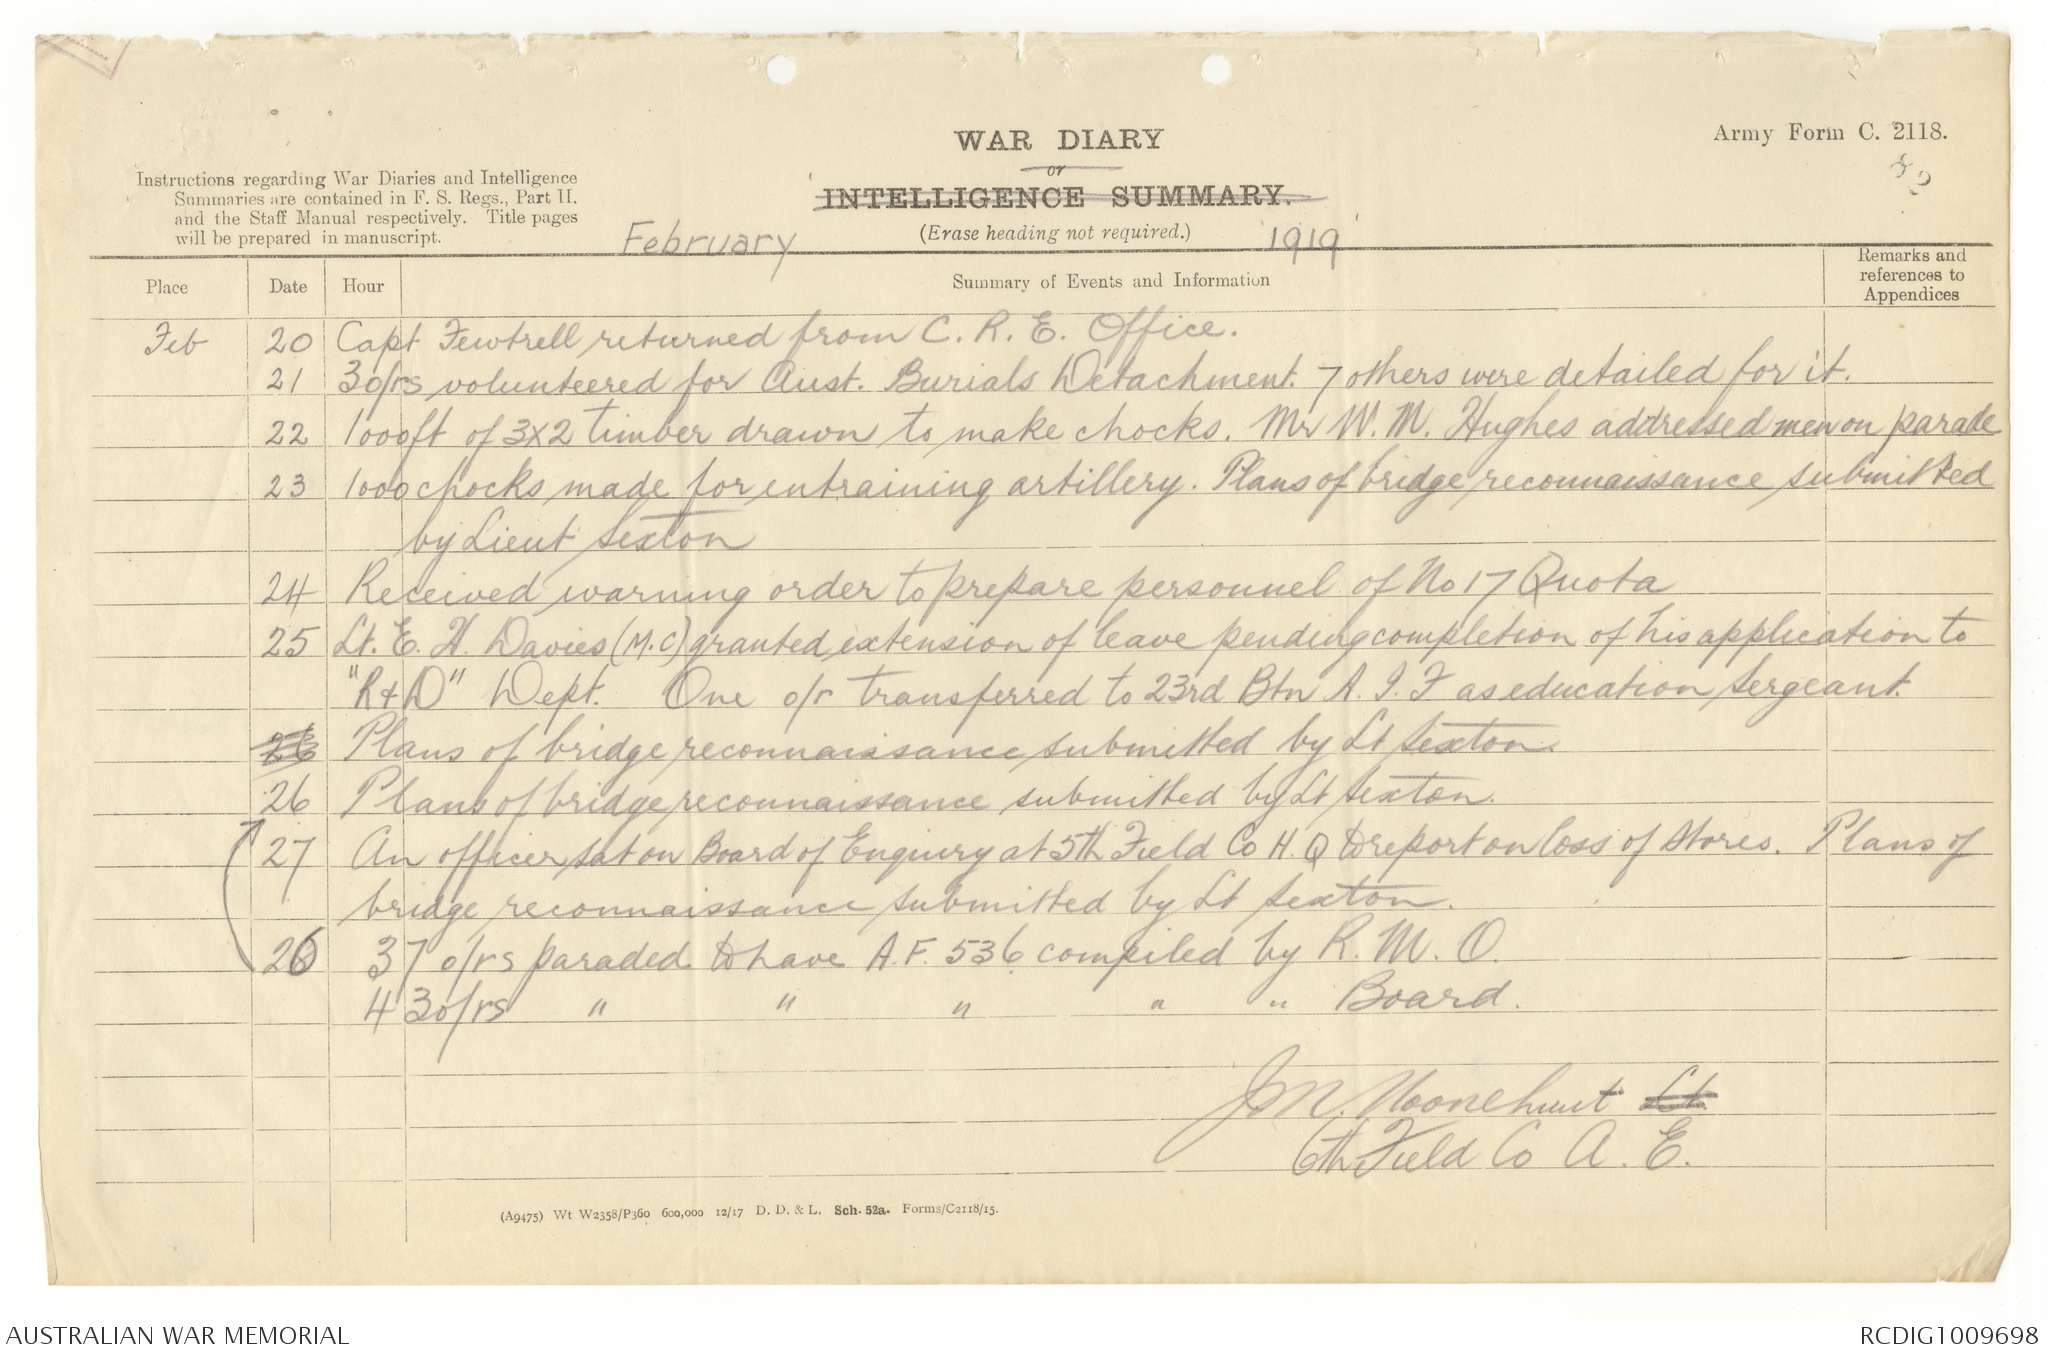 WAR DIARY
or
INTELLIGENCE SUMMARY.
(Erase heading not required.)
Army Form C. 2118.
Instructions regarding War Diaries and Intelligence
Summaries are contained in F. S. Regs., Part II.
and the Staff Manual respectively. Title pages
will be prepared in manuscript.
February 1919
Place Date Hour Summary of Events and Information Remarks and references to Appendices
Feb 20 Capt Fewtrell returned from C. R. E. Office.
21 3 o/rs volunteered for Aust. Burials Detachment. 7 others were detailed for it.
22 1000ft of 3x2 timber drawn to make chocks. Mr W. M. Hughes addressed men on parade
23 1000 chocks made for entraining artillery. Plans of bridge reconnaissance submitted
by Lieut Sexton
24 Received warning order to prepare personnel of No 17 Quota
25 Lt. E. H. Davies (M.C) granted extension of leave pending completion of his application to
"R & D" Dept. One o/r transferred to 23rd Btn A. I. F as education Sergeant.
26 Plans of bridge reconnaissance submitted by Lt Sexton.
26 Plans of bridge reconnaissance submitted by Lt Sexton.
27 An officer sat on Board of Enquiry at 5th Field Co H. Q to report on loss of stores. Plans of
bridge reconnaissance submitted by Lt Sexton.
26 37 o/rs paraded to have A.F. 536 compiled by R. M. O.
43 o/rs " " " " " Board.
Lt.
6th Field Co A. E.
(A9475) Wt W2358/P360 600,000 12/17 D. D. & L. Sch. 52a. Forms/C2118/15.
AUSTRALIAN WAR MEMORIAL
RCDIG1009698